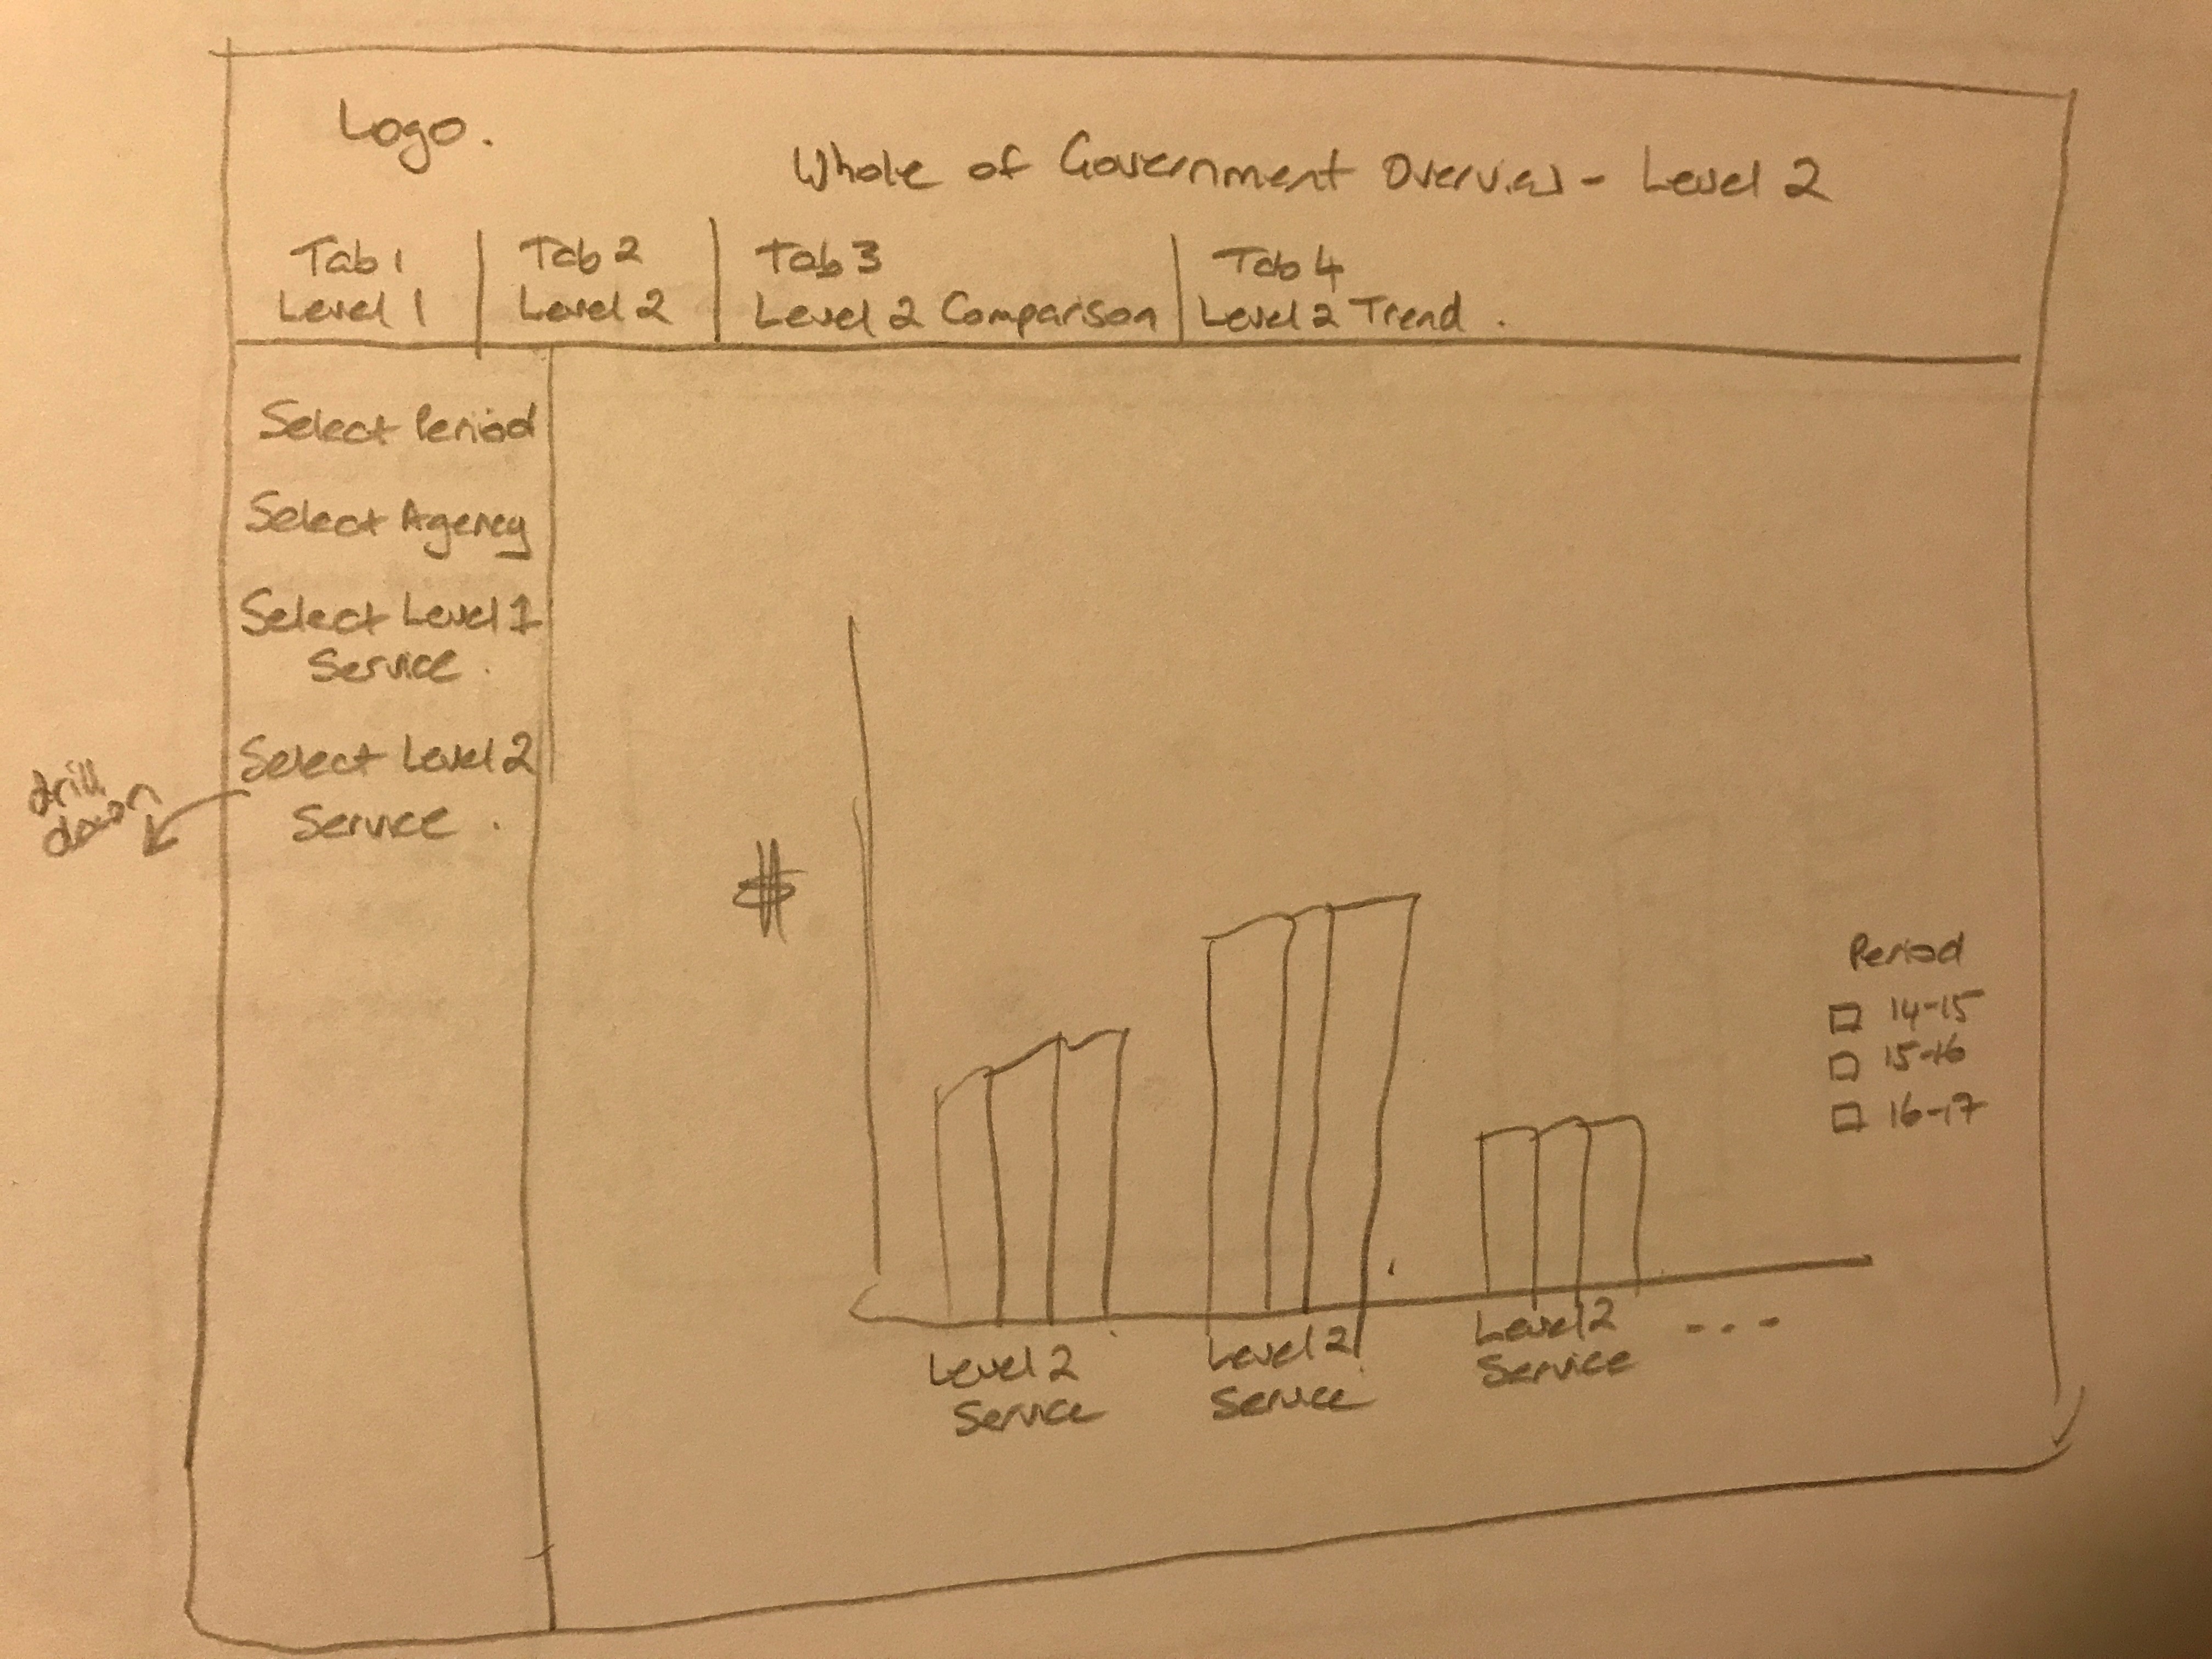 Logo.
Whole of Government Overview - Level 2
Tab 1
Level 1
Tab 2
Level 2
Tab 3
Level 2 Comparison
Tab 4
Level 2 Trend .
Select Period
Select Agency
Select Level 1
Service .
Select Level 2
Service .
drill
down
$
Period
14-15
15-16
16-17
Level 2
Service
Level 2
Service
Level 2
Service
- - -